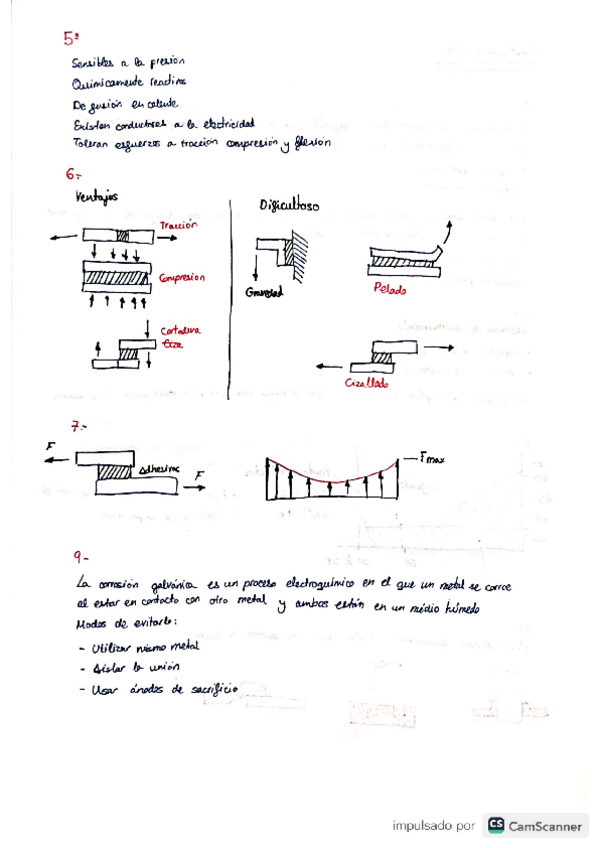 5º
Sensibles a la presión
Quimicamente reactivos
De fusión en caliente
Existen conductores a la electricidad
Toleran esfuerzos a tracción compresión y flexión
6.-
Ventajos
Dificultoso
Tracción
Compresion
Cortadura
Gravedad
Pelado
Cizallado
7.-
F
Adhesivos
F
Fmax
9-
La corrosión galvánica es un proceso electroquímico en el que un metal se corroe
al estar en contacto con otro metal y ambos están en un médio húmedo
Modos de evitarlo:
- Utilizar mismo metal
- Aislar la unión
- Usar ánodos de sacrificio
impulsado por CS CamScanner